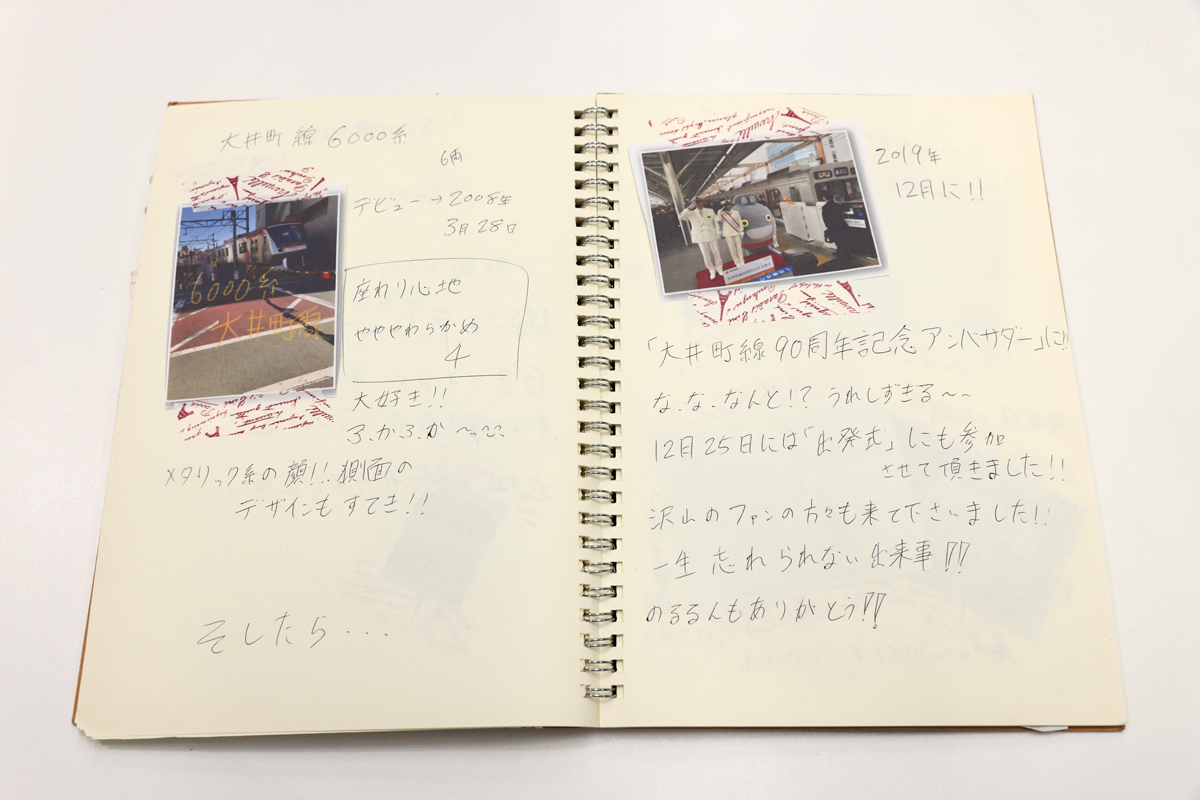 大井町線 6000系
6両
デビュー→2008年
3月28日
6000系
大井町線
座わり心地
やややわらかめ
4
大好き!!
メタリック系の顔!! 側面の
デザインもすてき!!
そしたら...
2019年
12月に!!
「大井町線90周年記念アンバサダー」に!!
な、な、なんと!? うれしすぎる~~
12月25日には「出発式」にも参加
させて頂きました!!
沢山のファンの方々も来て下さいました!!
一生忘れられない出来事!!
のるるんもありがとう!!